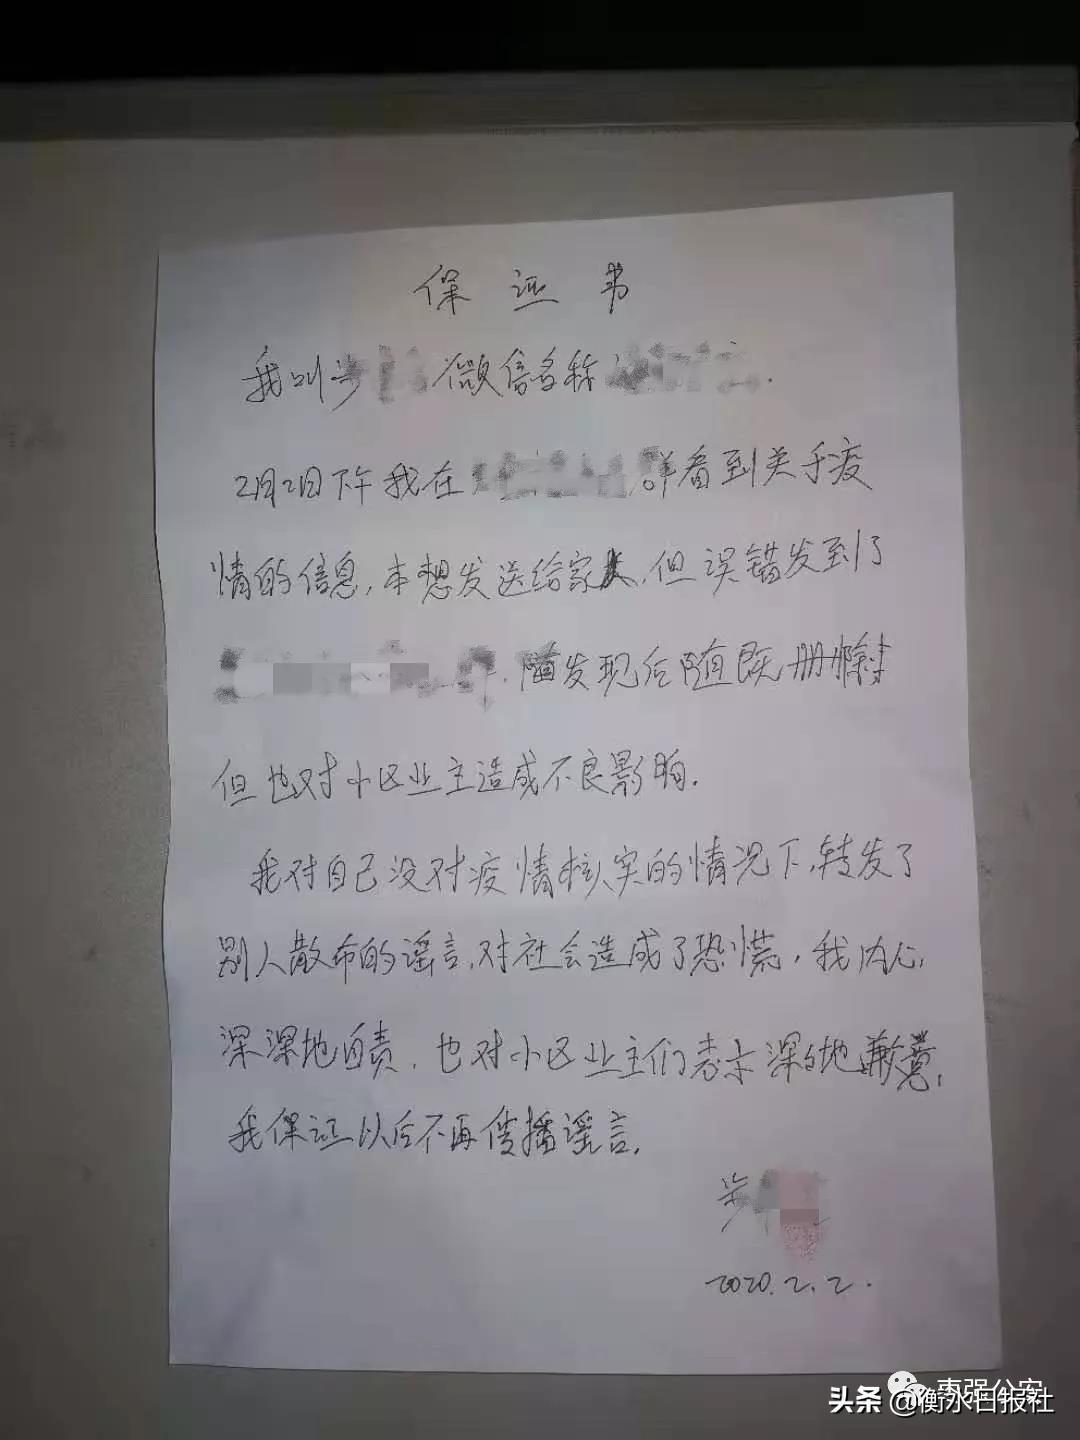 保证书
我叫步 微信名称 .
2月2日下午我在 群看到关于疫
情的信息,本想发送给家人,但误错发到了
发现后随既删除
但也对小区业主造成不良影响.
我对自己没对疫情核实的情况下,转发了
别人散布的谣言,对社会造成了恐慌,我内心
深深地自责,也对小区业主们表示深的地歉意,
我保证以后不再传播谣言.
步
2020.2.2.
枣强公安
头条 @衡水日报社